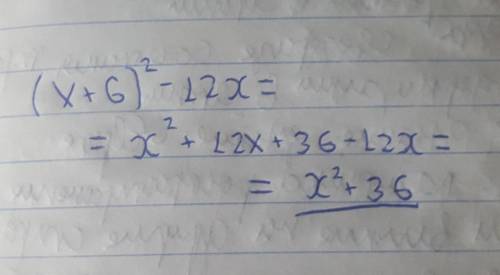 (x+6)² - 12x =
= x² + 12x + 36 - 12x =
= x² + 36